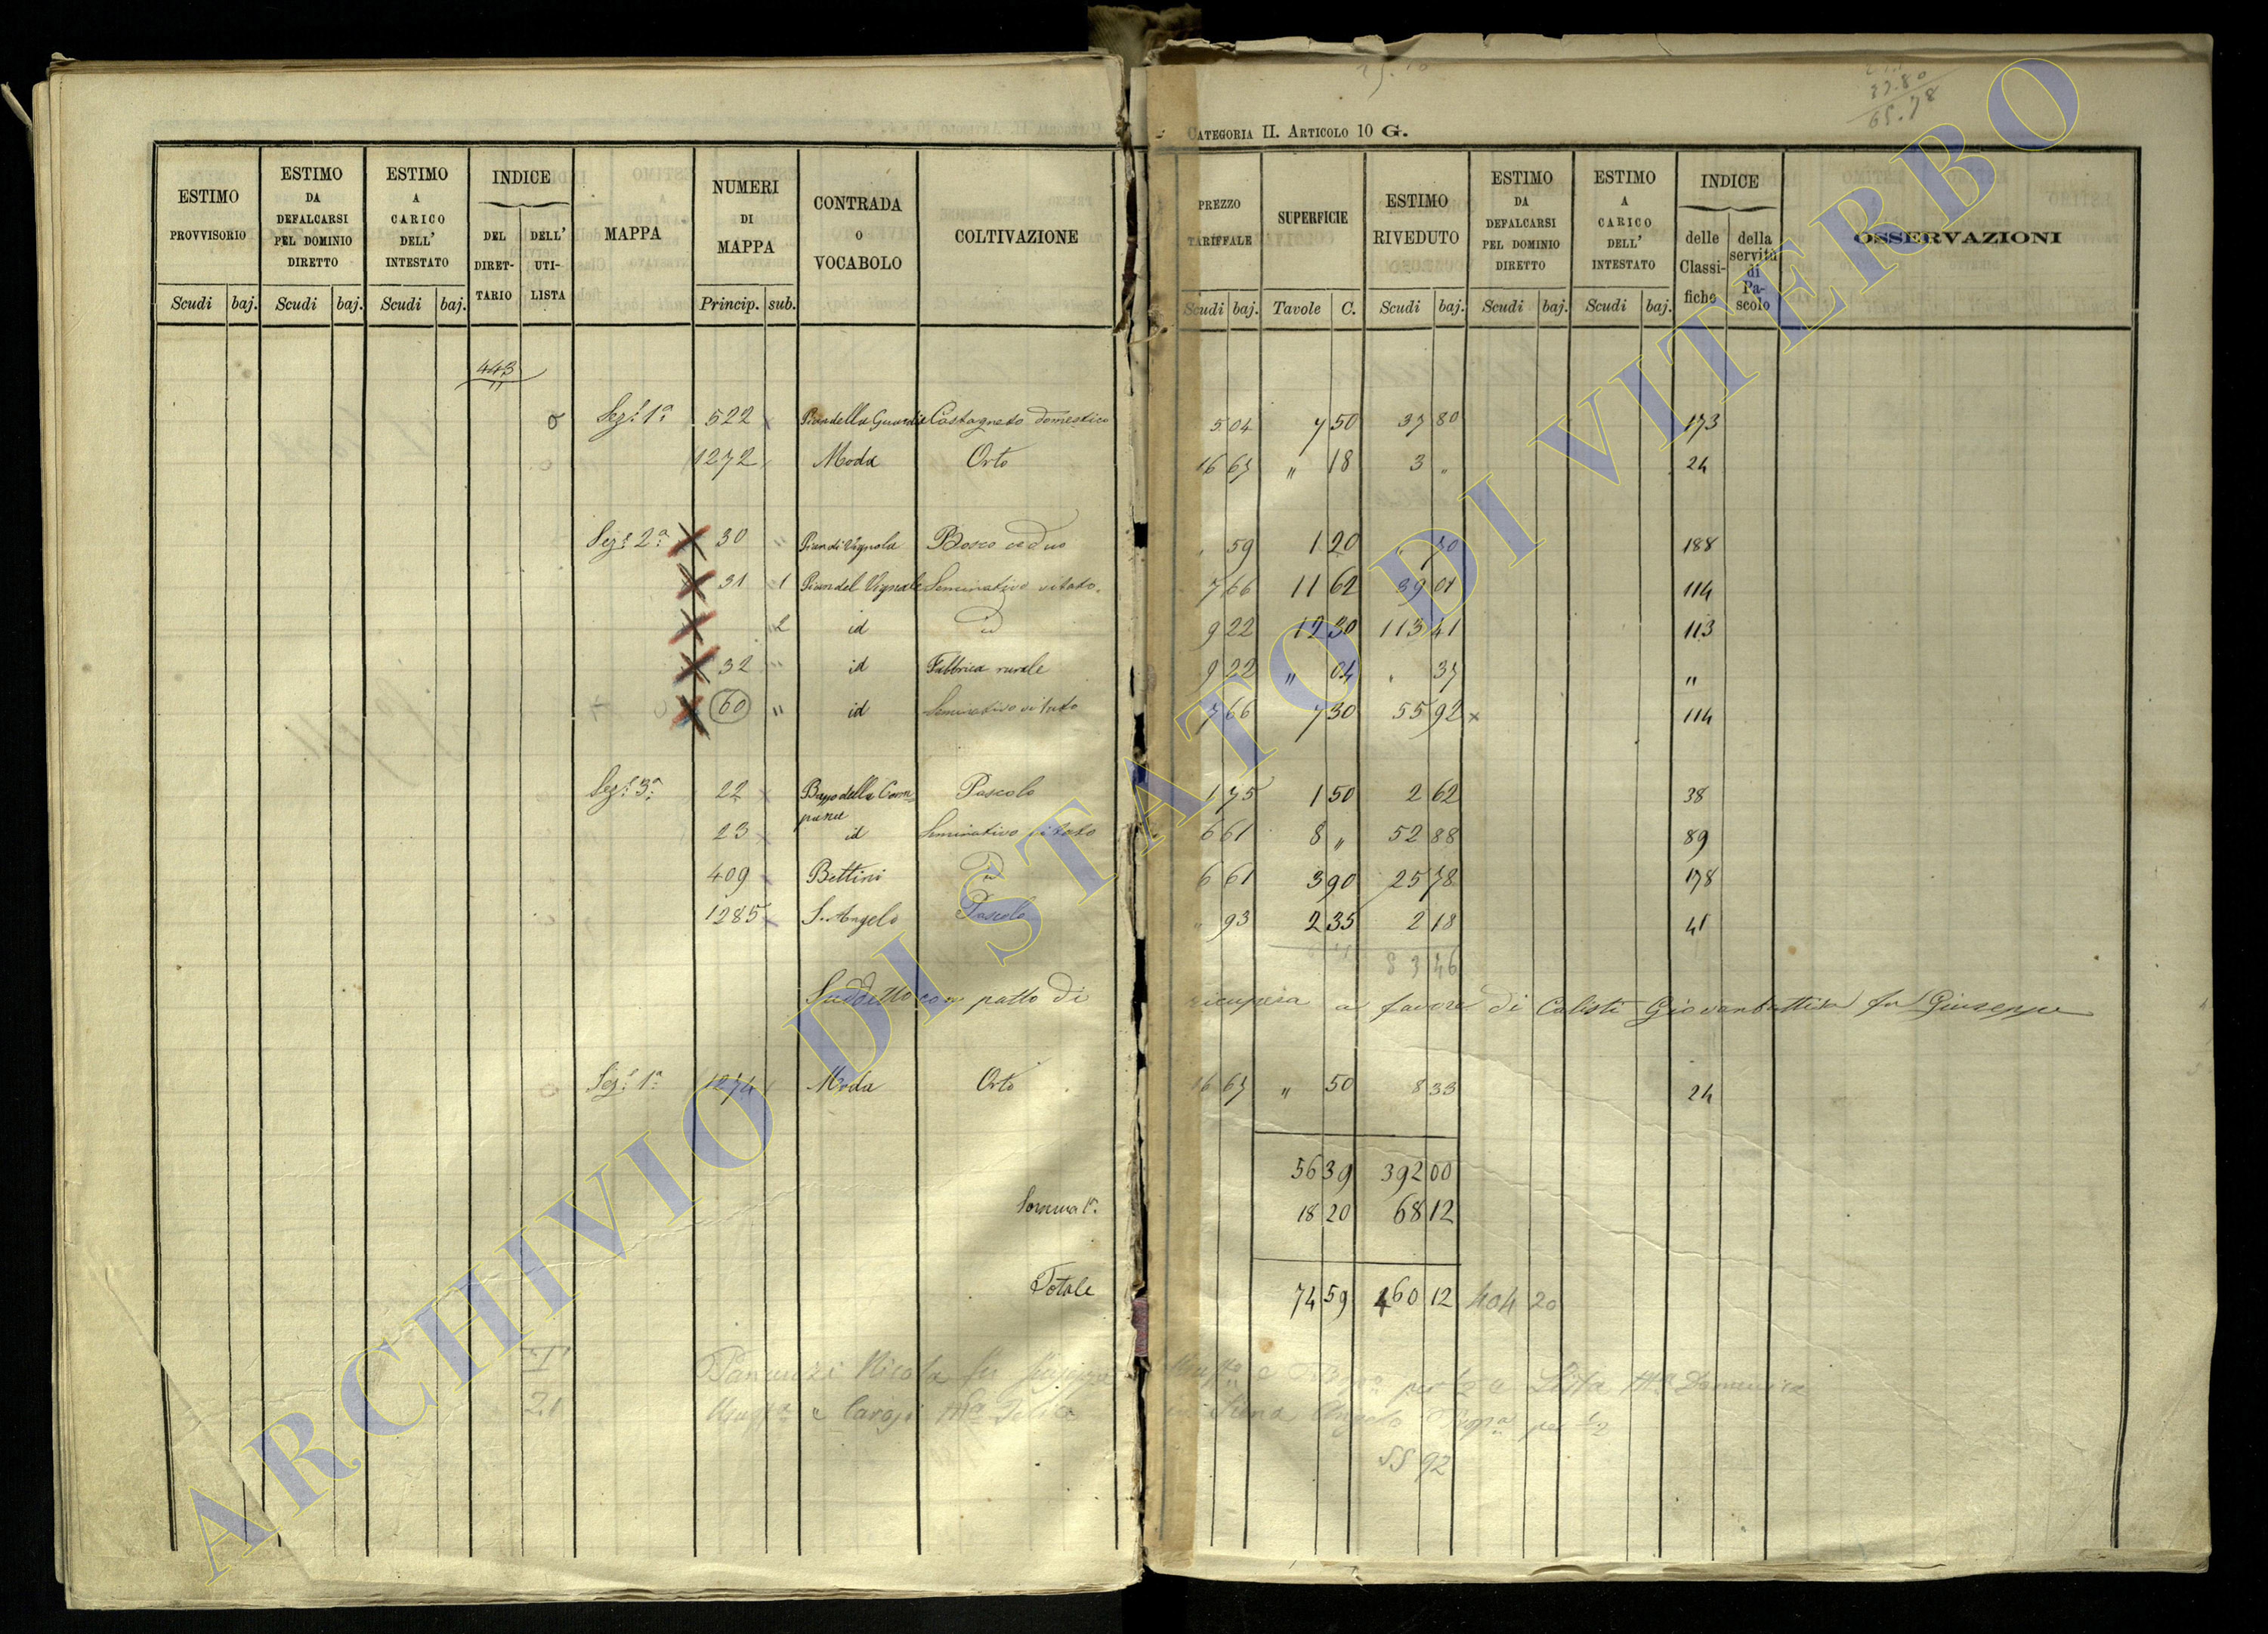 CATEGORIA II. ARTICOLO 10 G.
37.80
65.78
ESTIMO PROVVISORIO Scudi baj.
ESTIMO DA DEFALCARSI PEL DOMINIO DIRETTO Scudi baj.
ESTIMO A CARICO DELL' INTESTATO Scudi baj.
INDICE DEL DIRETTARIO DELL' UTILISTA
MAPPA
NUMERI DI MAPPA Princip. sub.
CONTRADA O VOCABOLO
COLTIVAZIONE
PREZZO TARIFFALE Scudi baj.
SUPERFICIE Tavole C.
ESTIMO RIVEDUTO Scudi baj.
ESTIMO DA DEFALCARSI PEL DOMINIO DIRETTO Scudi baj.
ESTIMO A CARICO DELL' INTESTATO Scudi baj.
INDICE delle Classifiche della servitù di Pascolo
OSSERVAZIONI
443
Sez.e 1a 522 Pian della Guardia Castagneto domestico 5 04 7 50 37 80 173
1272 Moda Orto 16 67 " 18 3 " 24
Sez.e 2a 30 " Pian di Vignola Bosco ceduo " 59 1 20 " 70 188
31 1 Pian del Vignale Seminativo vitato 7 66 11 62 89 01 114
2 id id 9 22 12 30 113 41 113
32 " id Fabbrica rurale 9 22 " 04 " 37 "
60 " id Seminativo vitato 7 66 7 30 55 92 x 114
Sez.e 3a 22 Poggio della Campana Pascolo 1 75 1 50 2 62 38
23 id Seminativo vitato 6 61 8 " 52 88 89
409 Bettini id 6 61 3 90 25 78 178
1285 S. Angelo Pascolo " 93 2 35 2 18 41
83 46
Suddetto con patto di ricupera a favore di Calisti Giovanbattista fu Giuseppe
Sez.e 1a 1274 Moda Orto 16 67 " 50 8 33 24
56 39 392 00
Somma 1a 18 20 68 12
Totale 74 59 460 12 404 20
Panunzi Nicola fu
55 92
ARCHIVIO DI STATO DI VITERBO